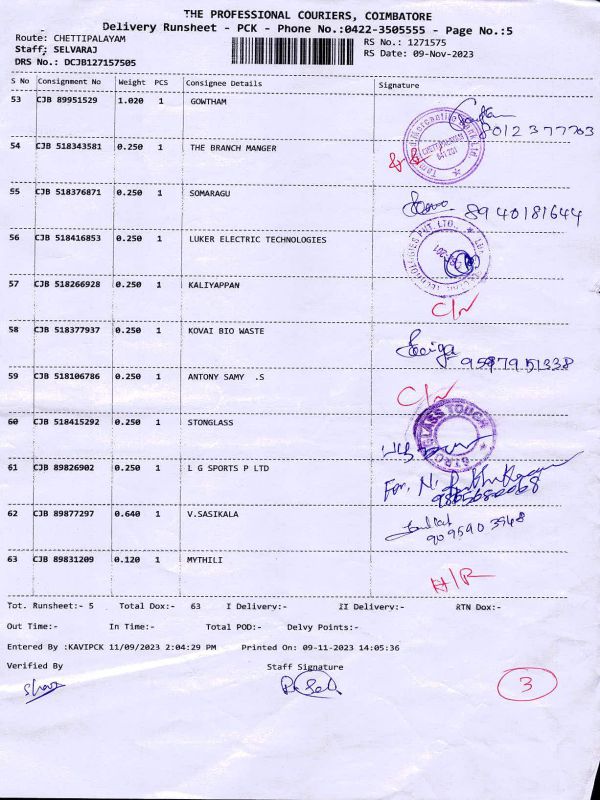 THE PROFESSIONAL COURIERS, COIMBATORE
Delivery Runsheet - PCK - Phone No.:0422-3505555 - Page No.:5
Route: CHETTIPALAYAM RS No.: 1271575
Staff: SELVARAJ RS Date: 09-Nov-2023
DRS No.: DCJB127157505
S No Consignment No Weight PCS Consignee Details Signature
53 CJB 89951529 1.020 1 GOWTHAM
54 CJB 518343581 0.250 1 THE BRANCH MANGER
55 CJB 518376871 0.250 1 SOMARAGU
8940181644
56 CJB 518416853 0.250 1 LUKER ELECTRIC TECHNOLOGIES
57 CJB 518266928 0.250 1 KALIYAPPAN
C/N
58 CJB 518377937 0.250 1 KOVAI BIO WASTE
59 CJB 518106786 0.250 1 ANTONY SAMY .S
C/N
60 CJB 518415292 0.250 1 STONGLASS
GLASS TOUCH
61 CJB 89826902 0.250 1 L G SPORTS P LTD
For, N.
62 CJB 89877297 0.640 1 V.SASIKALA
9095903948
63 CJB 89831209 0.120 1 MYTHILI
H/R
Tot. Runsheet:- 5 Total Dox:- 63 I Delivery:- II Delivery:- RTN Dox:-
Out Time:- In Time:- Total POD:- Delvy Points:-
Entered By :KAVIPCK 11/09/2023 2:04:29 PM Printed On: 09-11-2023 14:05:36
Verified By Staff Signature
3